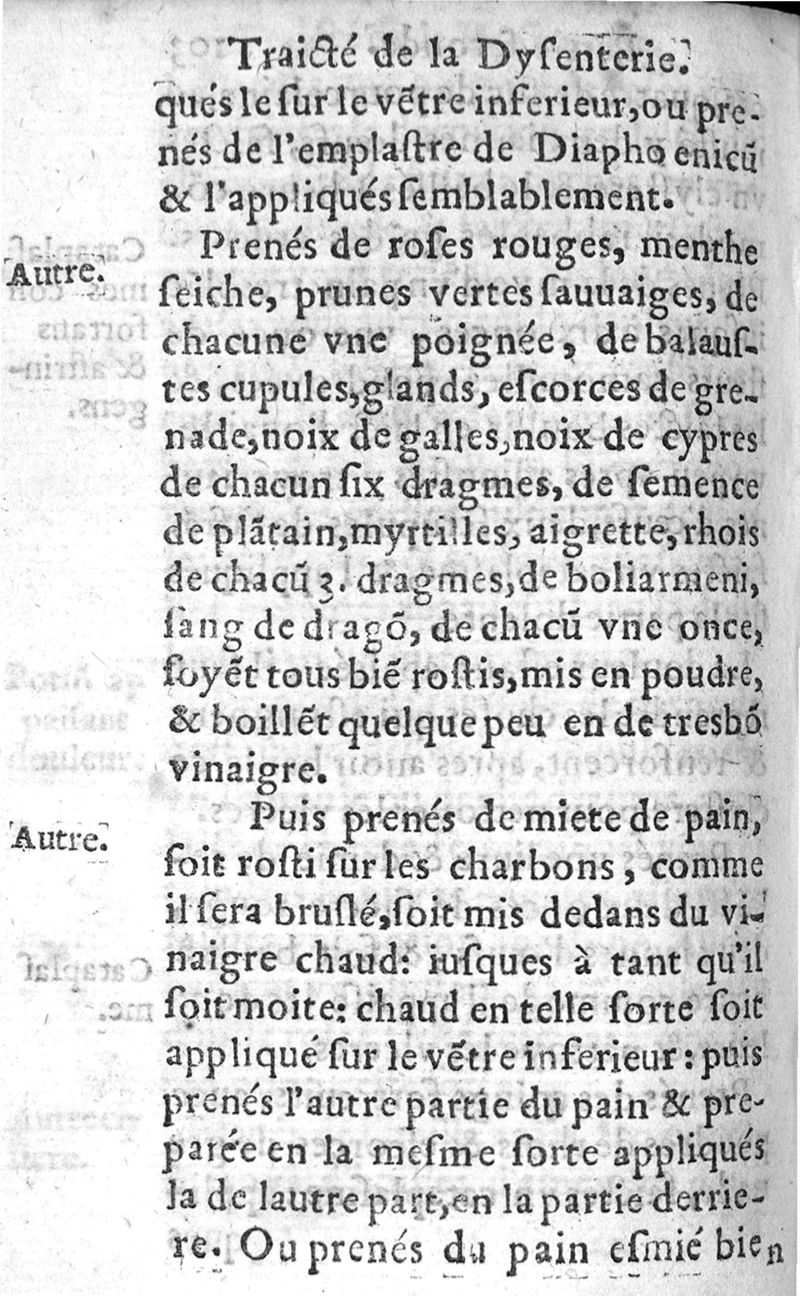 Traicté de la Dyſenterie.
qués le ſur le vẽtre inferieur, ou pre-
nés de l'emplaſtre de Diaphoenicũ
& l'appliqués ſemblablement.
Autre.
Prenés de roſes rouges, menthe
ſeiche, prunes vertes ſauuaiges, de
chacune vne poignée, de balauſ-
tes cupules, glands, eſcorces de gre-
nade, noix de galles, noix de cypres
de chacun ſix dragmes, de ſemence
de plãtain, myrtilles, aigrette, rhois
de chacũ 3. dragmes, de boliarmeni,
ſang de dragõ, de chacũ vne once,
ſoyẽt tous biẽ roſtis, mis en poudre,
& boillẽt quelque peu en de tresbõ
vinaigre.
Autre.
Puis prenés de miete de pain,
ſoit roſti ſur les charbons, comme
il ſera bruſlé, ſoit mis dedans du vi-
naigre chaud: iuſques à tant qu'il
ſoit moite: chaud en telle ſorte ſoit
appliqué ſur le vẽtre inferieur: puis
prenés l'autre partie du pain & pre-
parée en la meſme ſorte appliqués
la de lautre part, en la partie derrie-
re. Ou prenés du pain eſmié bien